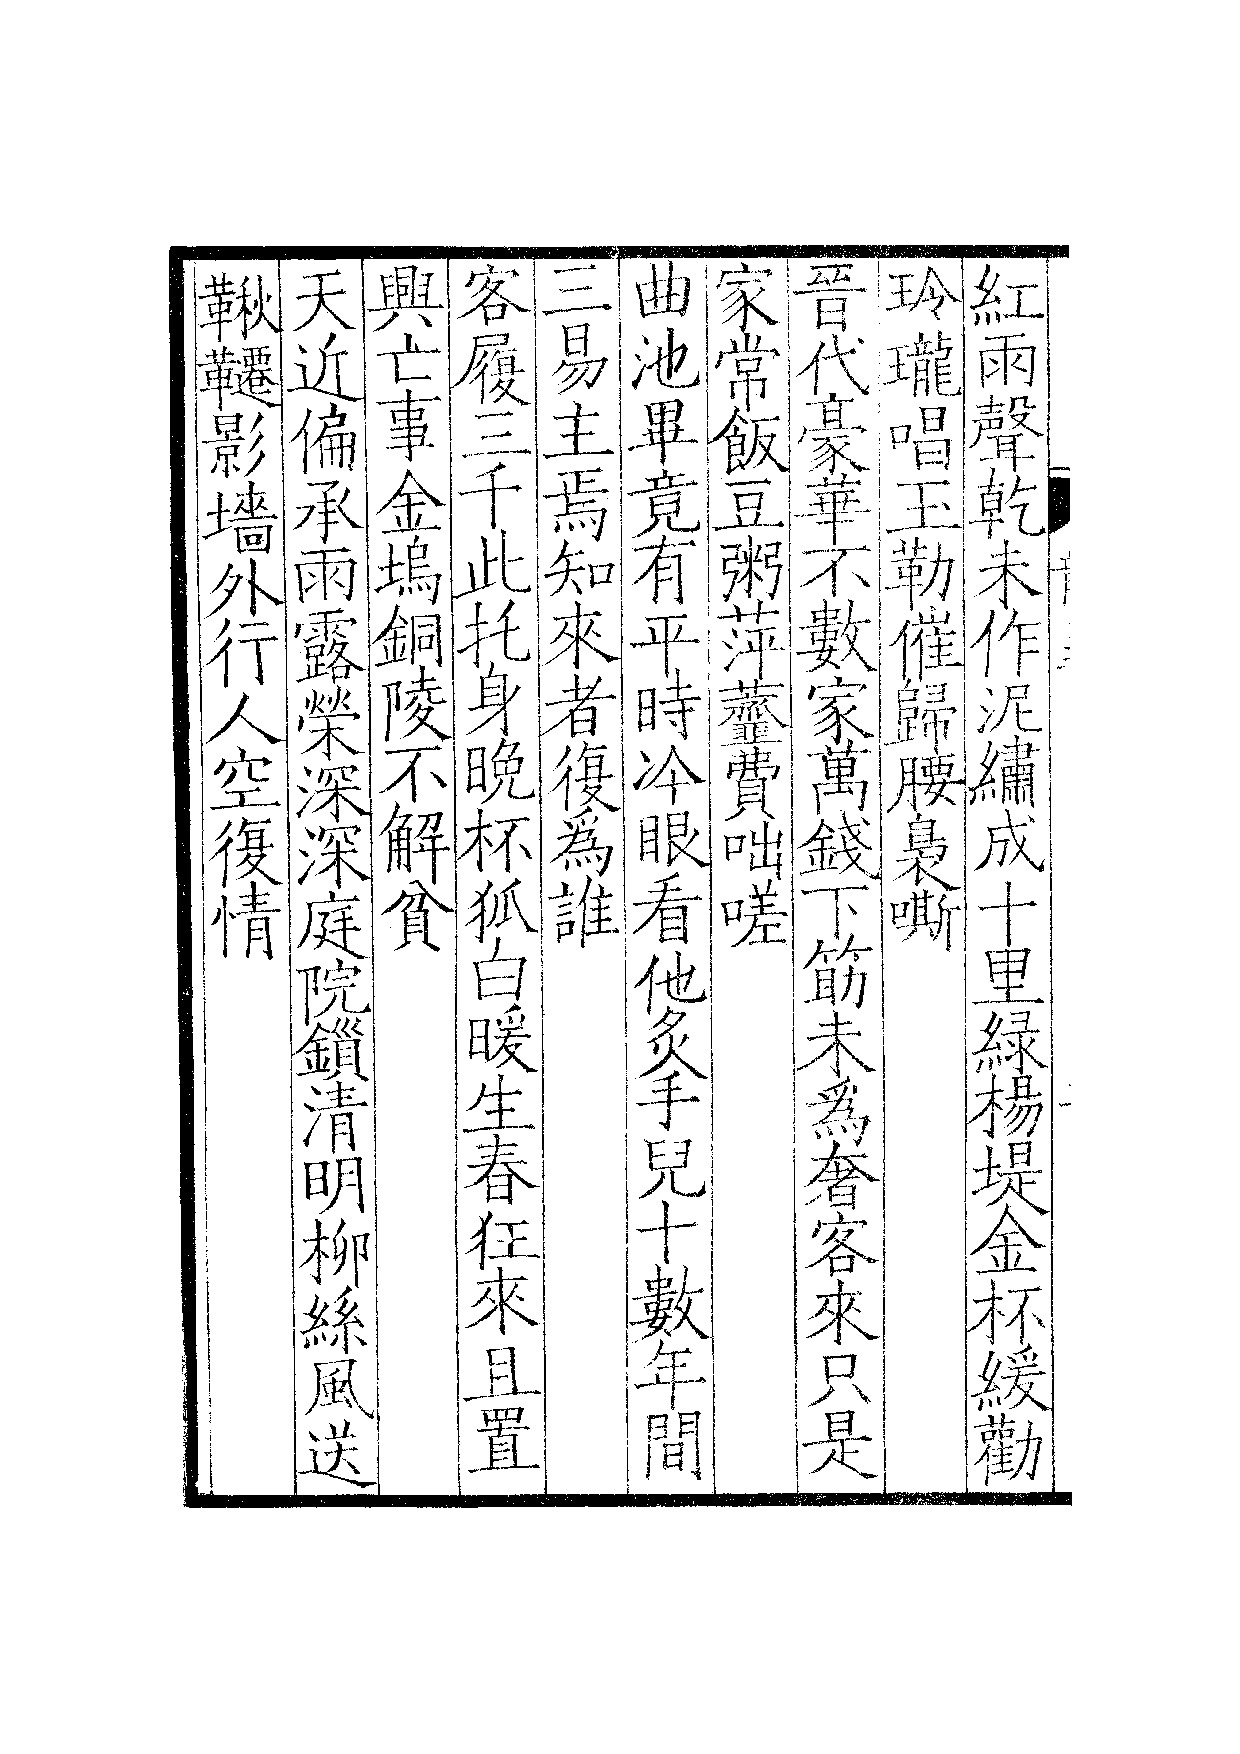 紅雨聲乾未作泥繡成十里緑楊堤金杯緩勸
玲瓏唱玉勒催歸腰褭嘶
晉代豪華不數家萬錢下筯未爲奢客來只是
家常飯豆粥萍虀費咄嗟
曲池畢竟有平時冷眼看他炙手兒十數年間
三易主焉知來者復爲誰
客履三千此托身晩杯狐白暖生春狂來且置
興亡事金塢銅陵不解貧
天近偏承雨露榮深深庭院鎻清明柳絲風送
鞦韆影墻外行人空復情